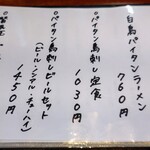 白鳥パイタンラーメン
760円
◦パイタン馬刺し定食
1030円
◦パイタン馬刺しビールセット
(ビール・ノンアル・チューハイ)
1450円